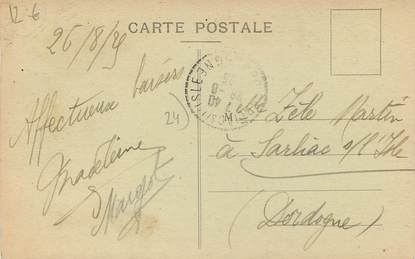 12 €
CARTE POSTALE
26/8/25
Affectueux baisers
Madeleine
Margot
24
M
Zélé Martin
à Sarliac s/l'Isle
(Dordogne)